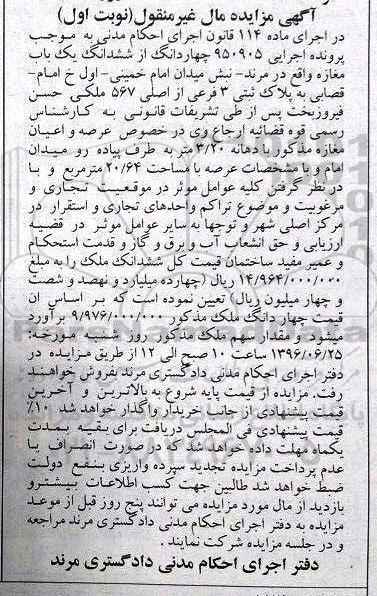 آگهی مزایده مال غیرمنقول(نوبت اول)
در اجرای ماده ۱۱۴ قانون اجرای احکام مدنی به موجب
پرونده اجرایی ۹۵۰۹۰۵ چهاردانگ از ششدانگ یک باب
مغازه واقع در مرند- نبش میدان امام خمینی- اول خ امام-
قصابی به پلاک ثبتی ۳ فرعی از اصلی ۵۶۷ ملکی حسن
فیروزبخت پس از طی تشریفات قانونی به کارشناس
رسمی قوه قضائیه ارجاع وی در خصوص عرصه و اعیان
مغازه مذکور با دهانه ۳/۲۰ متر به طرف پیاده رو میدان
امام و با مشخصات عرصه با مساحت ۲۰/۶۴ مترمربع و با
در نظر گرفتن کلیه عوامل موثر در موقعیت تجاری و
مرغوبیت و موضوع تراکم واحدهای تجاری و استقرار در
مرکز اصلی شهر و توجها به سایر عوامل موثر در قضیه
ارزیابی و حق انشعاب آب و برق و گاز و قدمت استحکام
و عمر مفید ساختمان قیمت کل ششدانگ ملک را به مبلغ
۱۴/۹۶۴/۰۰۰/۰۰۰ ریال (چهارده میلیارد و نهصد و شصت
و چهار میلیون ریال) تعیین نموده است که بر اساس ان
قیمت چهار دانگ ملک مذکور ۹/۹۷۶/۰۰۰/۰۰۰ برآورد
میشود و مقدار سهم ملک مذکور روز شنبه مورخه:
۱۳۹۶/۰۶/۲۵ ساعت ۱۰ صبح الی ۱۲ از طریق مزایده در
دفتر اجرای احکام مدنی دادگستری مرند بفروش خواهند
رفت. مزایده از قیمت پایه شروع به بالاترین و آخرین
قیمت پیشنهادی از جانب خریدار واگذار خواهد شد ۱۰٪
قیمت پیشنهادی فی المجلس دریافت برای بقیه بمدت
یکماه مهلت داده خواهد شد که در صورت انصراف یا
عدم پرداخت مزایده تجدید سپرده واریزی بنفع دولت
ضبط خواهد شد طالبین جهت کسب اطلاعات بیشتر و
بازدید از مال مورد مزایده می توانند پنج روز قبل از موعد
مزایده به دفتر اجرای احکام مدنی دادگستری مرند مراجعه
و در جلسه مزایده شرکت نمایند.
دفتر اجرای احکام مدنی دادگستری مرند